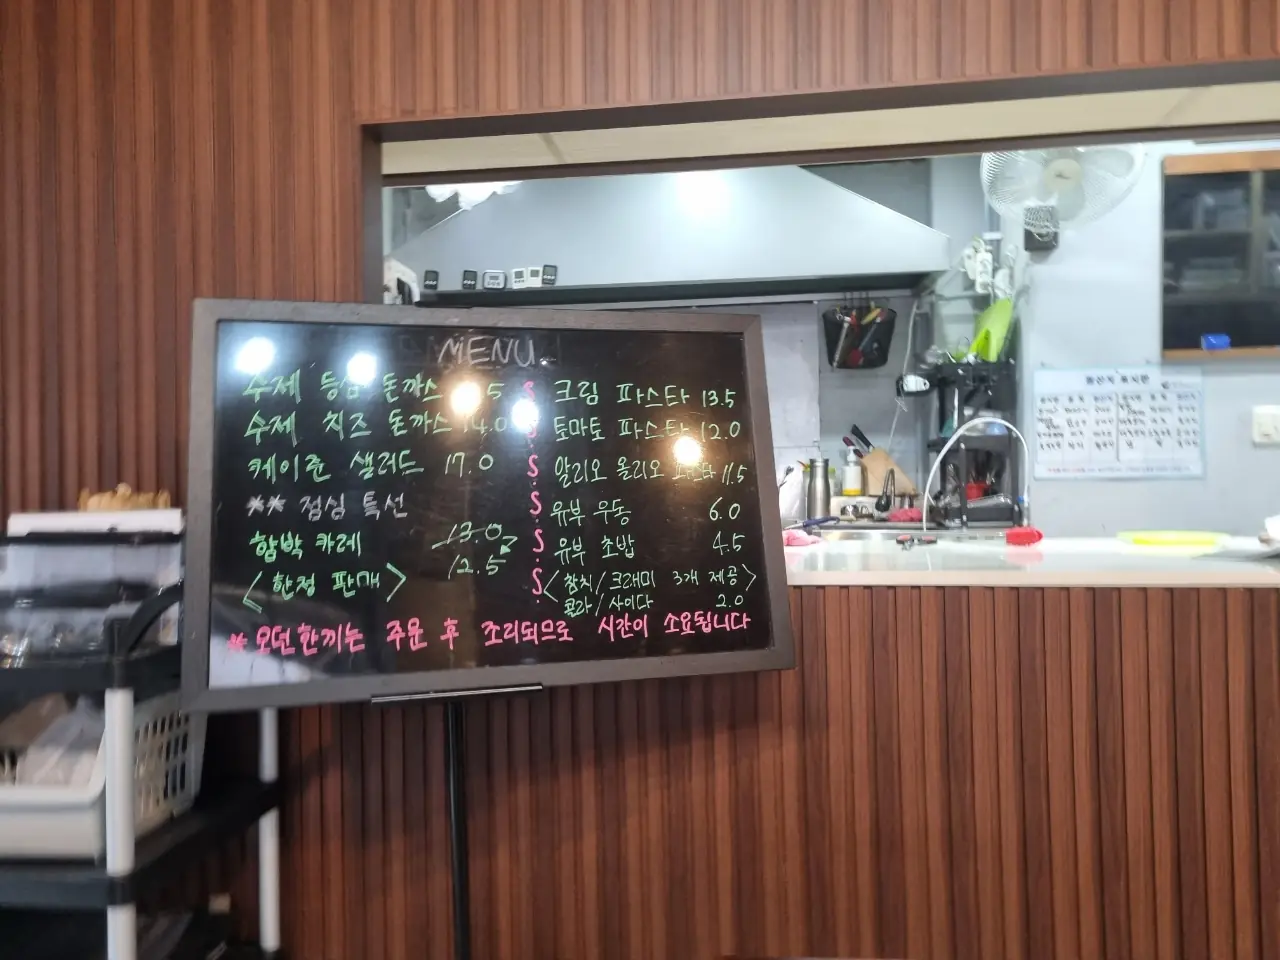 MENU
수제 등심 돈까스 5
수제 치즈 돈까스 14.0
케이준 샐러드 17.0
** 점심 특선
함박 카레 13.0
12.5
<한정 판매>
S
S
S
S
S
크림 파스타 13.5
토마토 파스타 12.0
알리오 올리오 파스타 11.5
유부 우동 6.0
유부 초밥 4.5
<참치/크래미 3개 제공>
콜라/사이다 2.0
* 오던한끼는 주문 후 조리되므로 시간이 소요됩니다